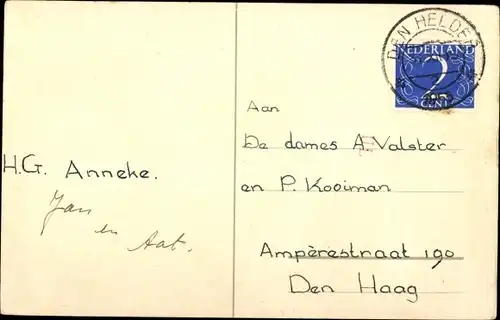 DEN HELDER
NEDERLAND
2
CENT
Aan
De dames A. Valster
en P. Kooiman
Ampèrestraat 190
Den Haag
H.G. Anneke.
Jan
en
Aat.